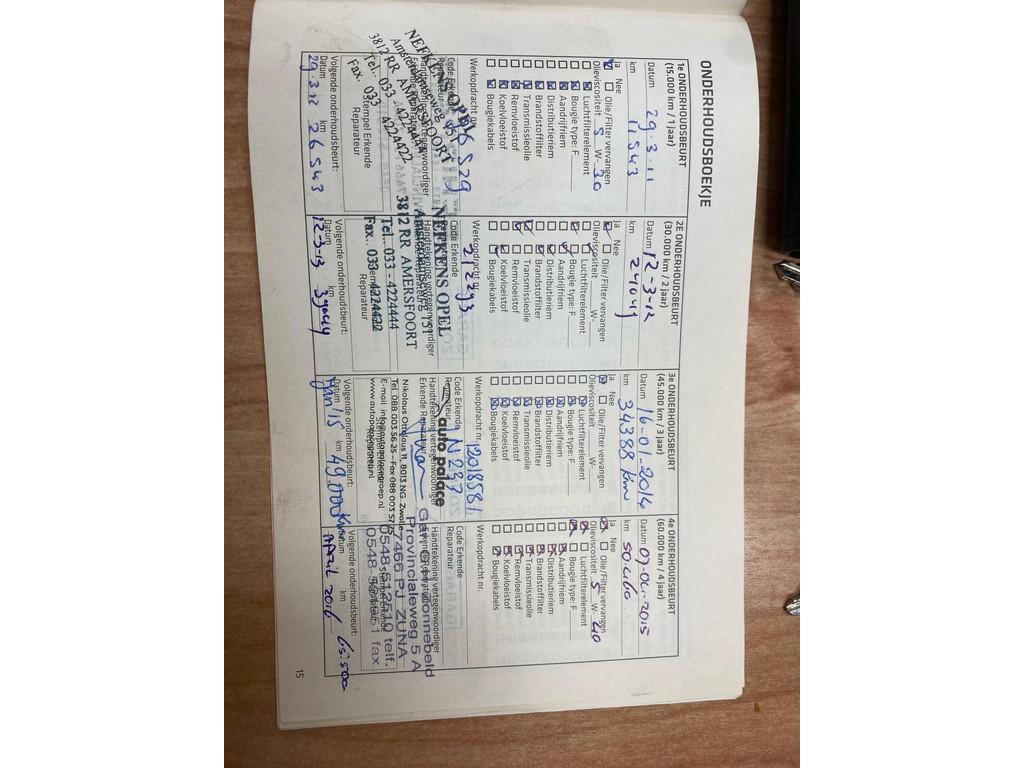 ONDERHOUDSBOEKJE
1e ONDERHOUDSBEURT
(15.000 km / 1 jaar)
Datum 29.3.11
km 11543
Ja Nee
Olie/Filter vervangen
Olieviscositeit 5 W- 30
Luchtfilterelement
Bougie type: F
Aandrijfriem
Distributieriem
Brandstoffilter
Transmissieolie
Remvloeistof
Koelvloeistof
Bougiekabels
Werkopdracht nr.
Code Erkende
Reparateur
NEFKENS OPEL
Amsterdamseweg
3812 RR AMERSFOORT
Tel.. 033 - 4224422
Fax. 033
Stempel Erkende
Reparateur
Volgende onderhoudsbeurt:
Datum km
29.3.12 26543
2E ONDERHOUDSBEURT
(30.000 km / 2 jaar)
Datum 12-3-12
km 24049
Ja Nee
Olie/Filter vervangen
Olieviscositeit W-
Luchtfilterelement
Bougie type: F
Aandrijfriem
Distributieriem
Brandstoffilter
Transmissieolie
Remvloeistof
Koelvloeistof
Bougiekabels
Werkopdracht nr.
Code Erkende
NEFKENS OPEL
Handtekening vertegenwoordiger
Amsterdamseweg 151
3812 RR AMERSFOORT
Tel.. 033 - 4224444
Fax.. 033 - 4224422
Reparateur
Volgende onderhoudsbeurt:
Datum km
12-3-13
3e ONDERHOUDSBEURT
(45.000 km / 3 jaar)
Datum 16-01-2014
km 34388 km
Ja Nee
Olie/Filter vervangen
Olieviscositeit W-
Luchtfilterelement
Bougie type: F
Aandrijfriem
Distributieriem
Brandstoffilter
Transmissieolie
Remvloeistof
Koelvloeistof
Bougiekabels
Werkopdracht nr. 12018581
Code Erkende N 287
Reparateur auto palace
Handtekening vertegenwoordiger
Erkende Reparateur
Nikolaus Ottolaus 11, 8013 NG Zwolle
Tel. 088 003 56 25 - Fax 088 003 57
Reparateur
Volgende onderhoudsbeurt:
Datum km
Jan/15 49.000 km
4e ONDERHOUDSBEURT
(60.000 km / 4 jaar)
Datum 07-04-2015
km 50.416
Ja Nee
Olie/Filter vervangen
Olieviscositeit 5 W- 40
Luchtfilterelement
Bougie type: F
Aandrijfriem
Distributieriem
Brandstoffilter
Transmissieolie
Remvloeistof
Koelvloeistof
Bougiekabels
Werkopdracht nr.
Code Erkende
Reparateur
Handtekening vertegenwoordiger
Provincialeweg 5 A
7466 PJ ZUNA
0548-512510 telf.
fax
Volgende onderhoudsbeurt:
Datum km
April 2016 65.500
15